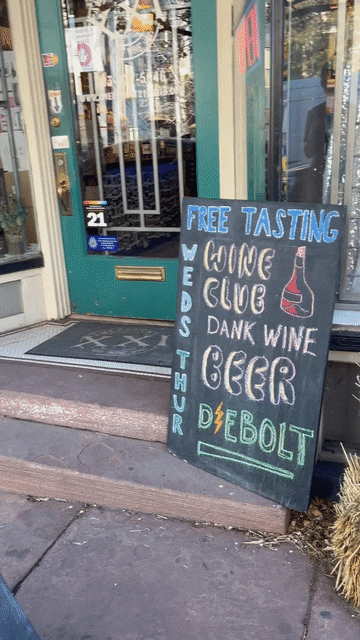 21
FREE TASTING
WEDS
WINE
CLUB
DANK WINE
THUR
BEER
D⚡EBOLT
XXI